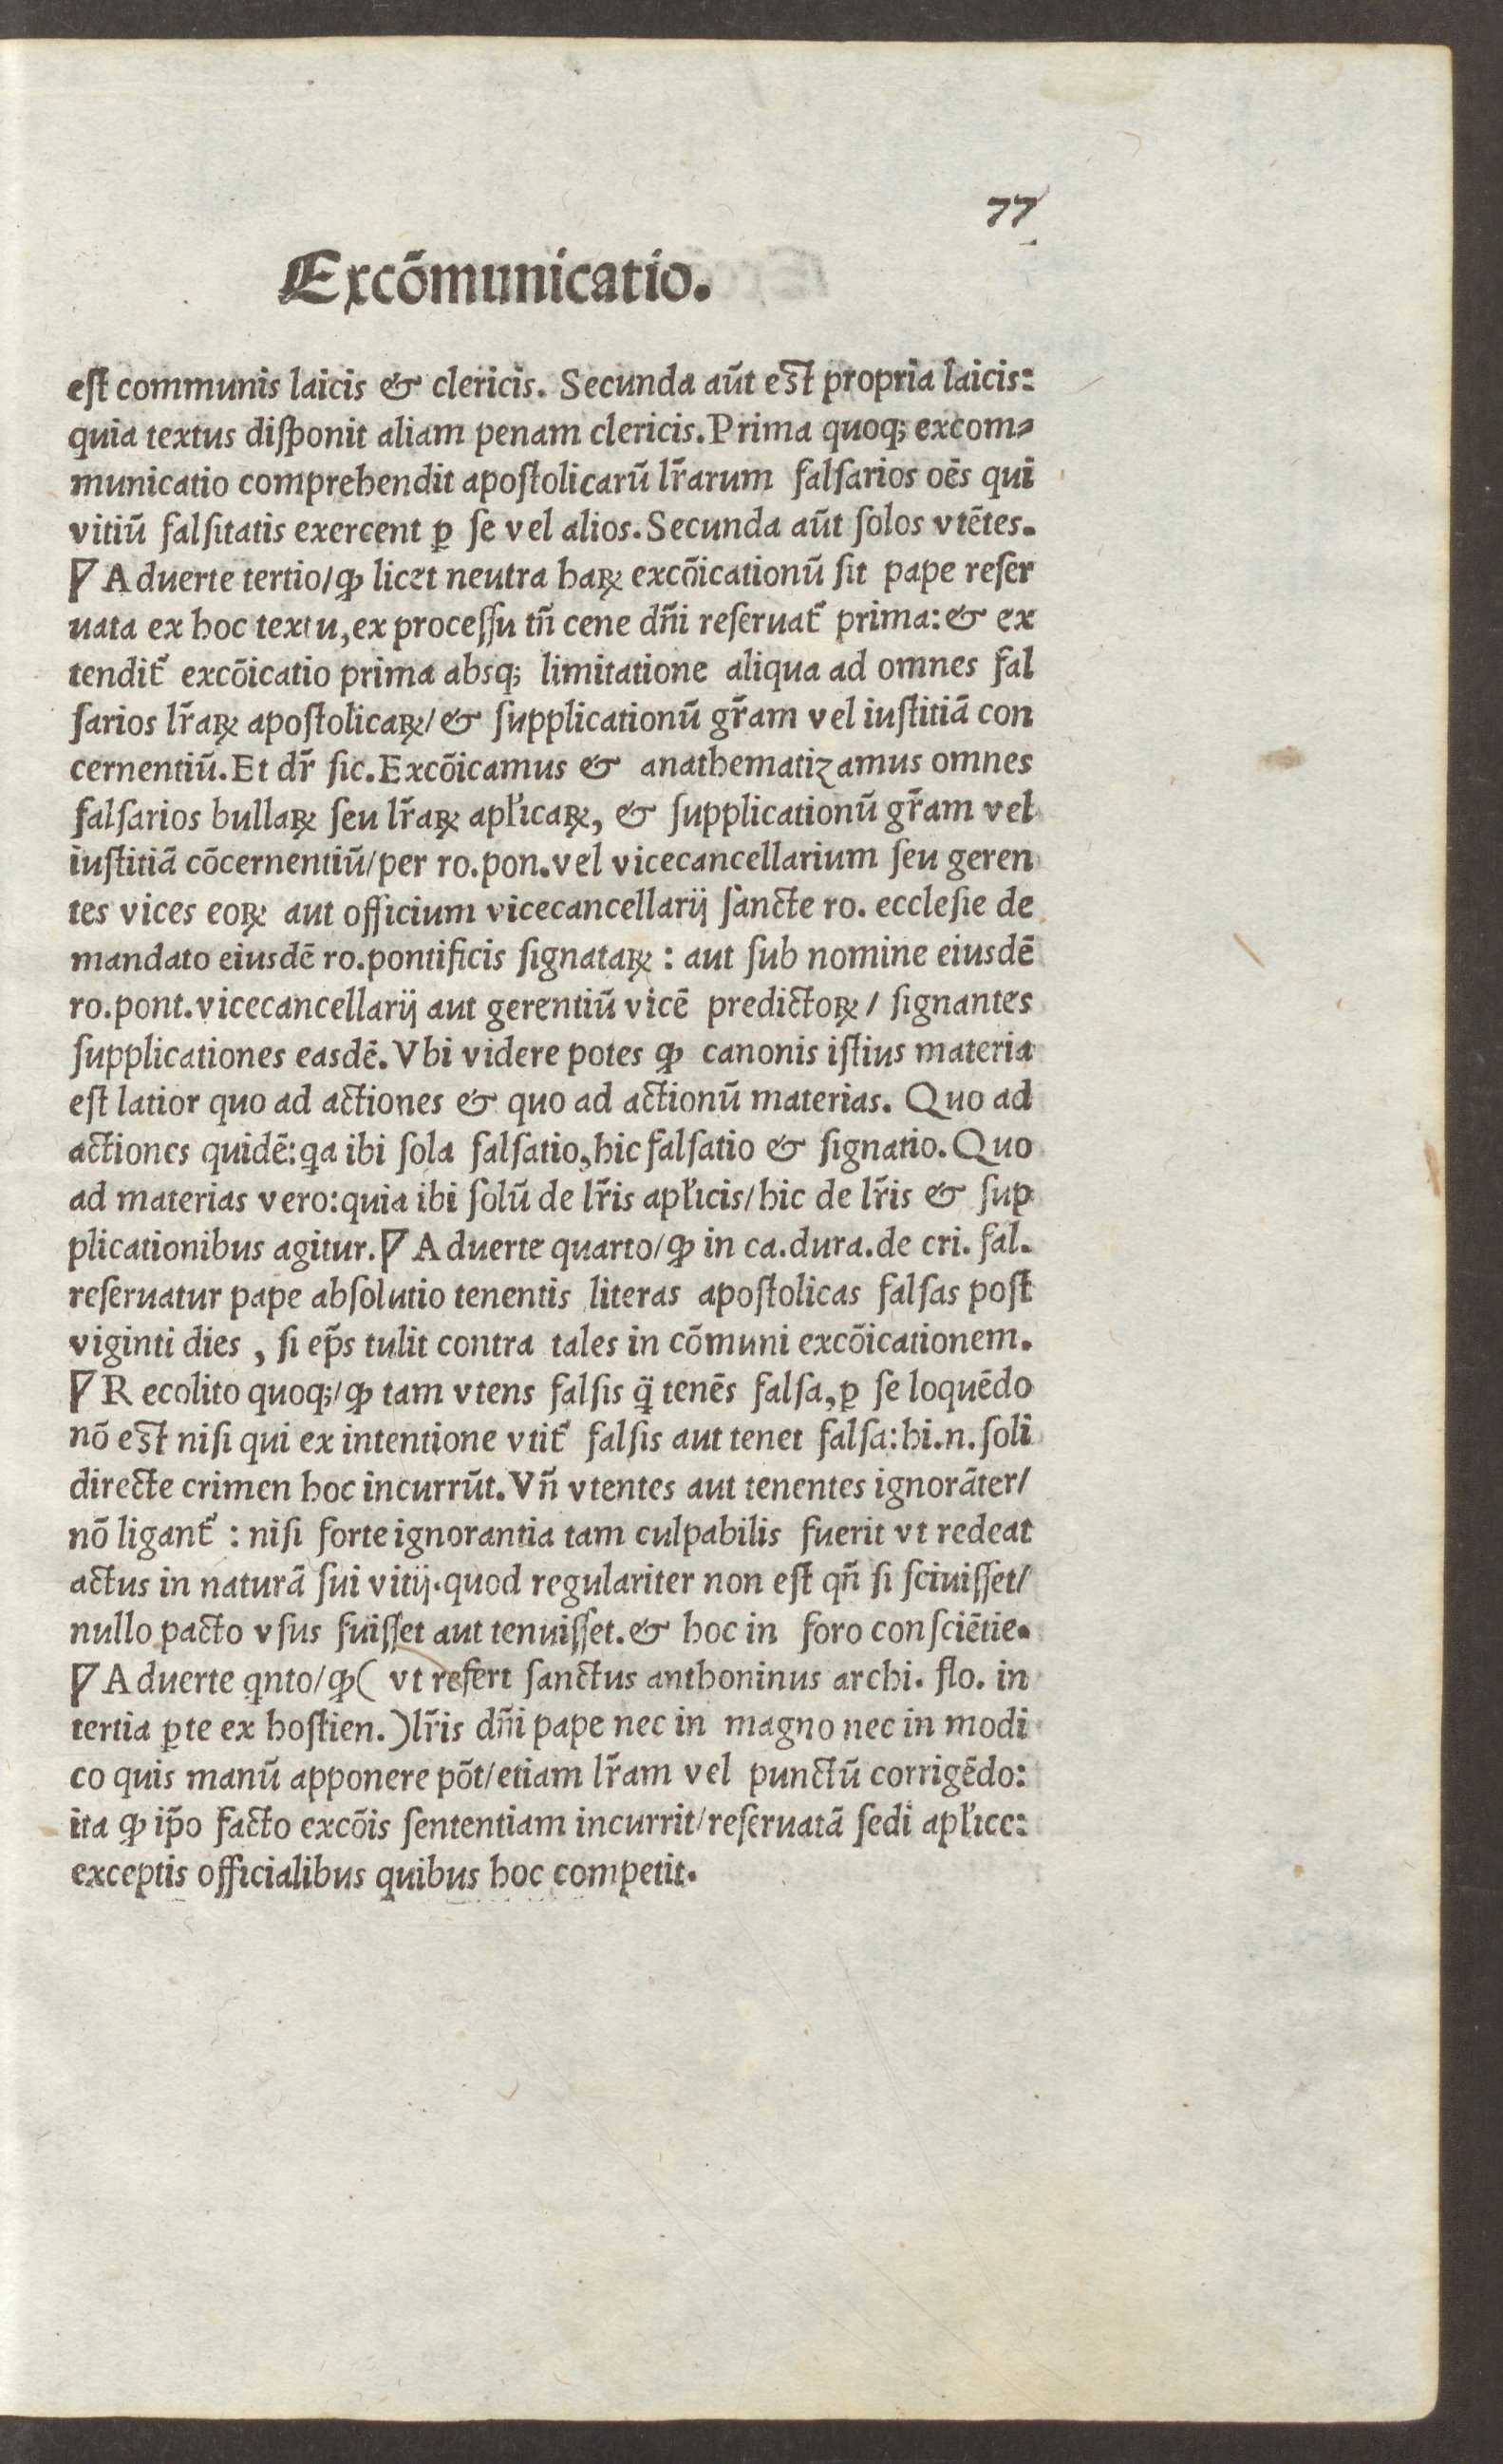 77
Excōmunicatio.
eſt communis laicis & clericis. Secunda aūt eſt propria laicis:
quia textus diſponit aliam penam clericis. Prima quoqꝫ excom⸗
municatio comprehendit apoſtolicarū lr̄arum falſarios oēs qui
vitiū falſitatis exercent ꝑ ſe vel alios. Secunda aūt ſolos vtētes.
¶ Aduerte tertio/ꝙ licet neutra haꝝ excōicationū ſit pape reſer
uata ex hoc textu, ex proceſſu tn̄ cene dn̄i reſeruat᷑ prima: & ex
tendit᷑ excōicatio prima absqꝫ limitatione aliqua ad omnes fal
ſarios lr̄aꝝ apoſtolicaꝝ/& ſupplicationū gr̄am vel iuſtitiā con
cernentiū. Et dr̄ ſic. Excōicamus & anathematizamus omnes
falſarios bullaꝝ ſeu lr̄aꝝ apl̓icaꝝ, & ſupplicationū gr̄am vel
iuſtitiā cōcernentiū/per ro. pon. vel vicecancellarium ſeu geren
tes vices eoꝝ aut officium vicecancellarij ſancte ro. eccleſie de
mandato eiusdē ro. pontificis ſignataꝝ: aut ſub nomine eiusdē
ro. pont. vicecancellarij aut gerentiū vicē predictoꝝ/ ſignantes
ſupplicationes easdē. Vbi videre potes ꝙ canonis iſtius materia
eſt latior quo ad actiones & quo ad actionū materias. Quo ad
actiones quidē: qa ibi ſola falſatio, hic falſatio & ſignatio. Quo
ad materias vero: quia ibi ſolū de lr̄is apl̓icis/hic de lr̄is & ſup
plicationibus agitur. ¶ Aduerte quarto/ꝙ in ca. dura. de cri. fal.
reſeruatur pape abſolutio tenentis literas apoſtolicas falſas poſt
viginti dies, ſi ep̄s tulit contra tales in cōmuni excōicationem.
¶ Recolito quoqꝫ/ꝙ tam vtens falſis q̄ tenēs falſa, ꝑ ſe loquēdo
nō eſt niſi qui ex intentione vtit᷑ falſis aut tenet falſa: hi. n. ſoli
directe crimen hoc incurrūt. Vn̄ vtentes aut tenentes ignorāter/
nō ligant᷑: niſi forte ignorantia tam culpabilis fuerit vt redeat
actus in naturā ſui vitij. quod regulariter non eſt qn̄ ſi ſciuiſſet/
nullo pacto vſus fuiſſet aut tenuiſſet. & hoc in foro conſciētie.
¶ Aduerte qnto/ꝙ( vt refert ſanctus anthoninus archi. flo. in
tertia ꝑte ex hoſtien.) lr̄is dn̄i pape nec in magno nec in modi
co quis manū apponere pōt/etiam lr̄am vel punctū corrigēdo:
ita ꝙ ip̄o facto excōis ſententiam incurrit/reſeruatā ſedi apl̓ice:
exceptis officialibus quibus hoc competit.